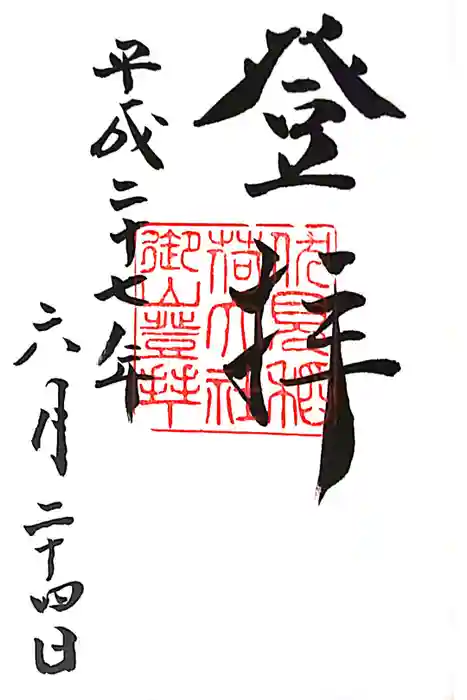 登拝
伏見稲
荷大社
御山登拝
平成二十七年
六月二十四日